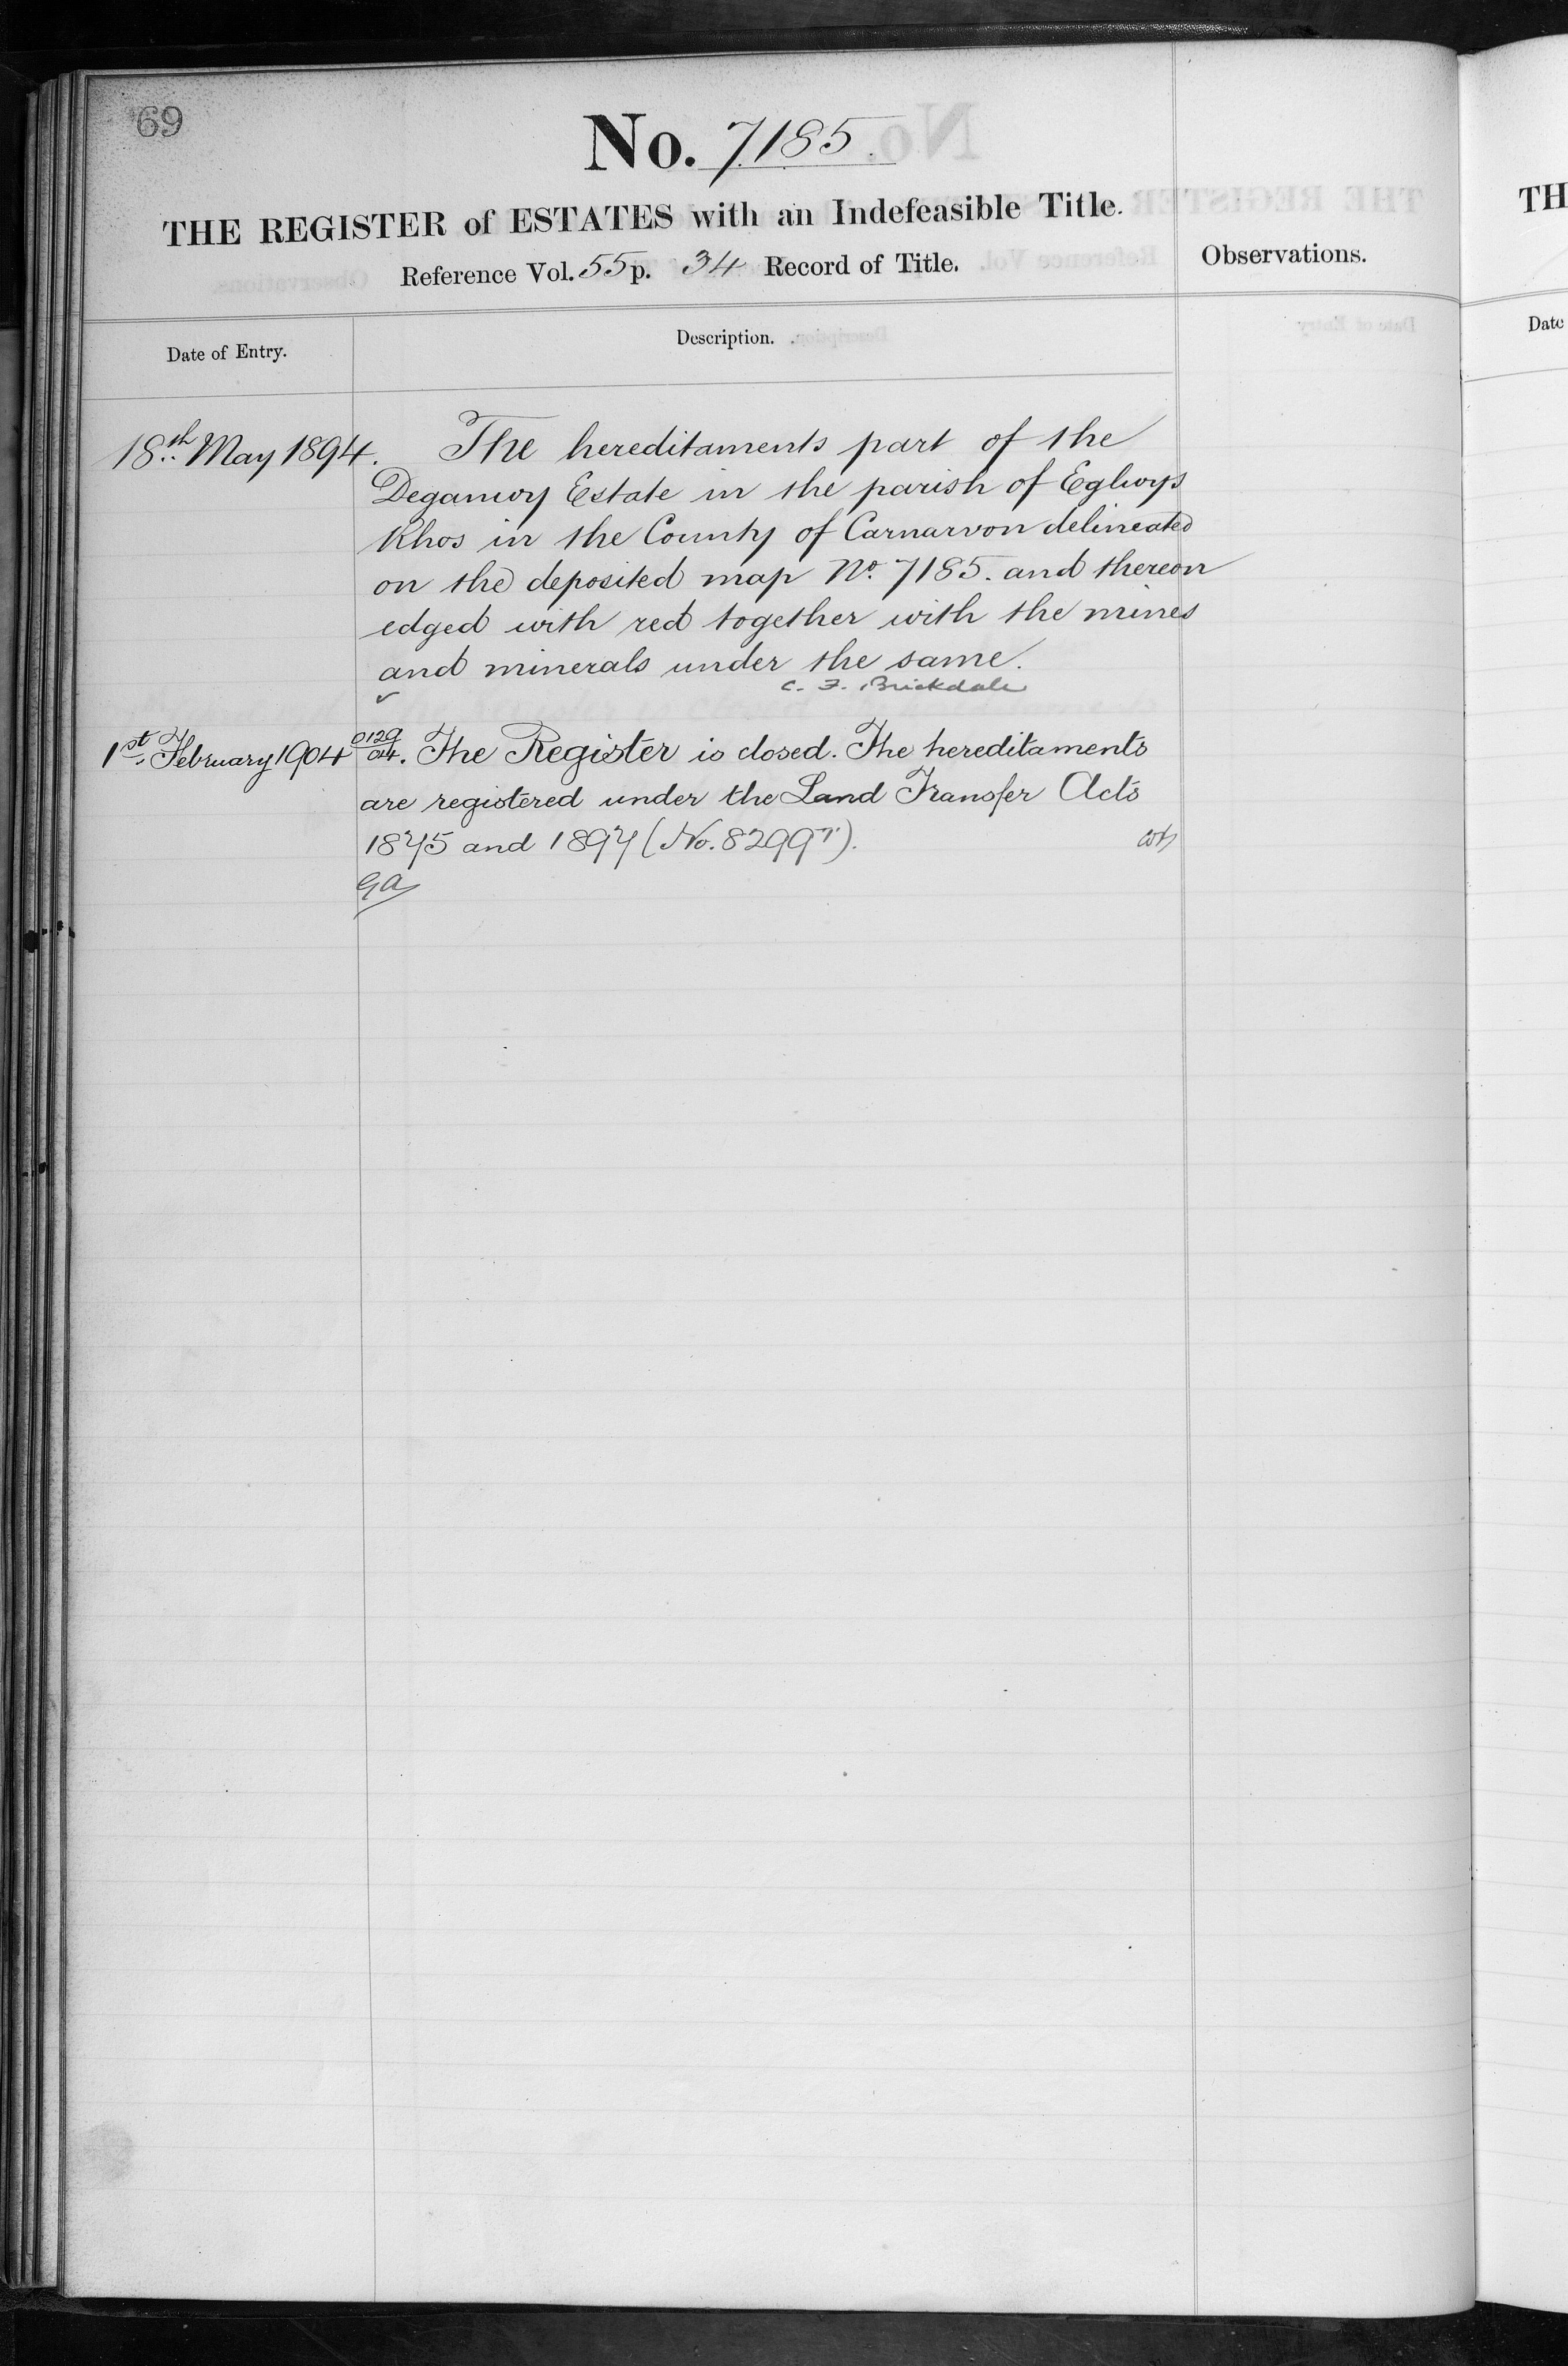 69
No. 7185.
THE REGISTER of ESTATES with an Indefeasible Title.
Reference Vol. 55 p. 34 Record of Title.
Observations.
Date of Entry.
Description.
18th May 1894.
The hereditaments part of the
Deganwy Estate in the parish of Eglwys
Rhos in the County of Carnarvon delineated
on the deposited map No. 7185. and thereon
edged with red together with the mines
and minerals under the same.
C. F. Brickdale
1st February 1904
0129/04. The Register is closed. The hereditaments
are registered under the Land Transfer Acts
1875 and 1897 (No. 8299
GA
TH
Date